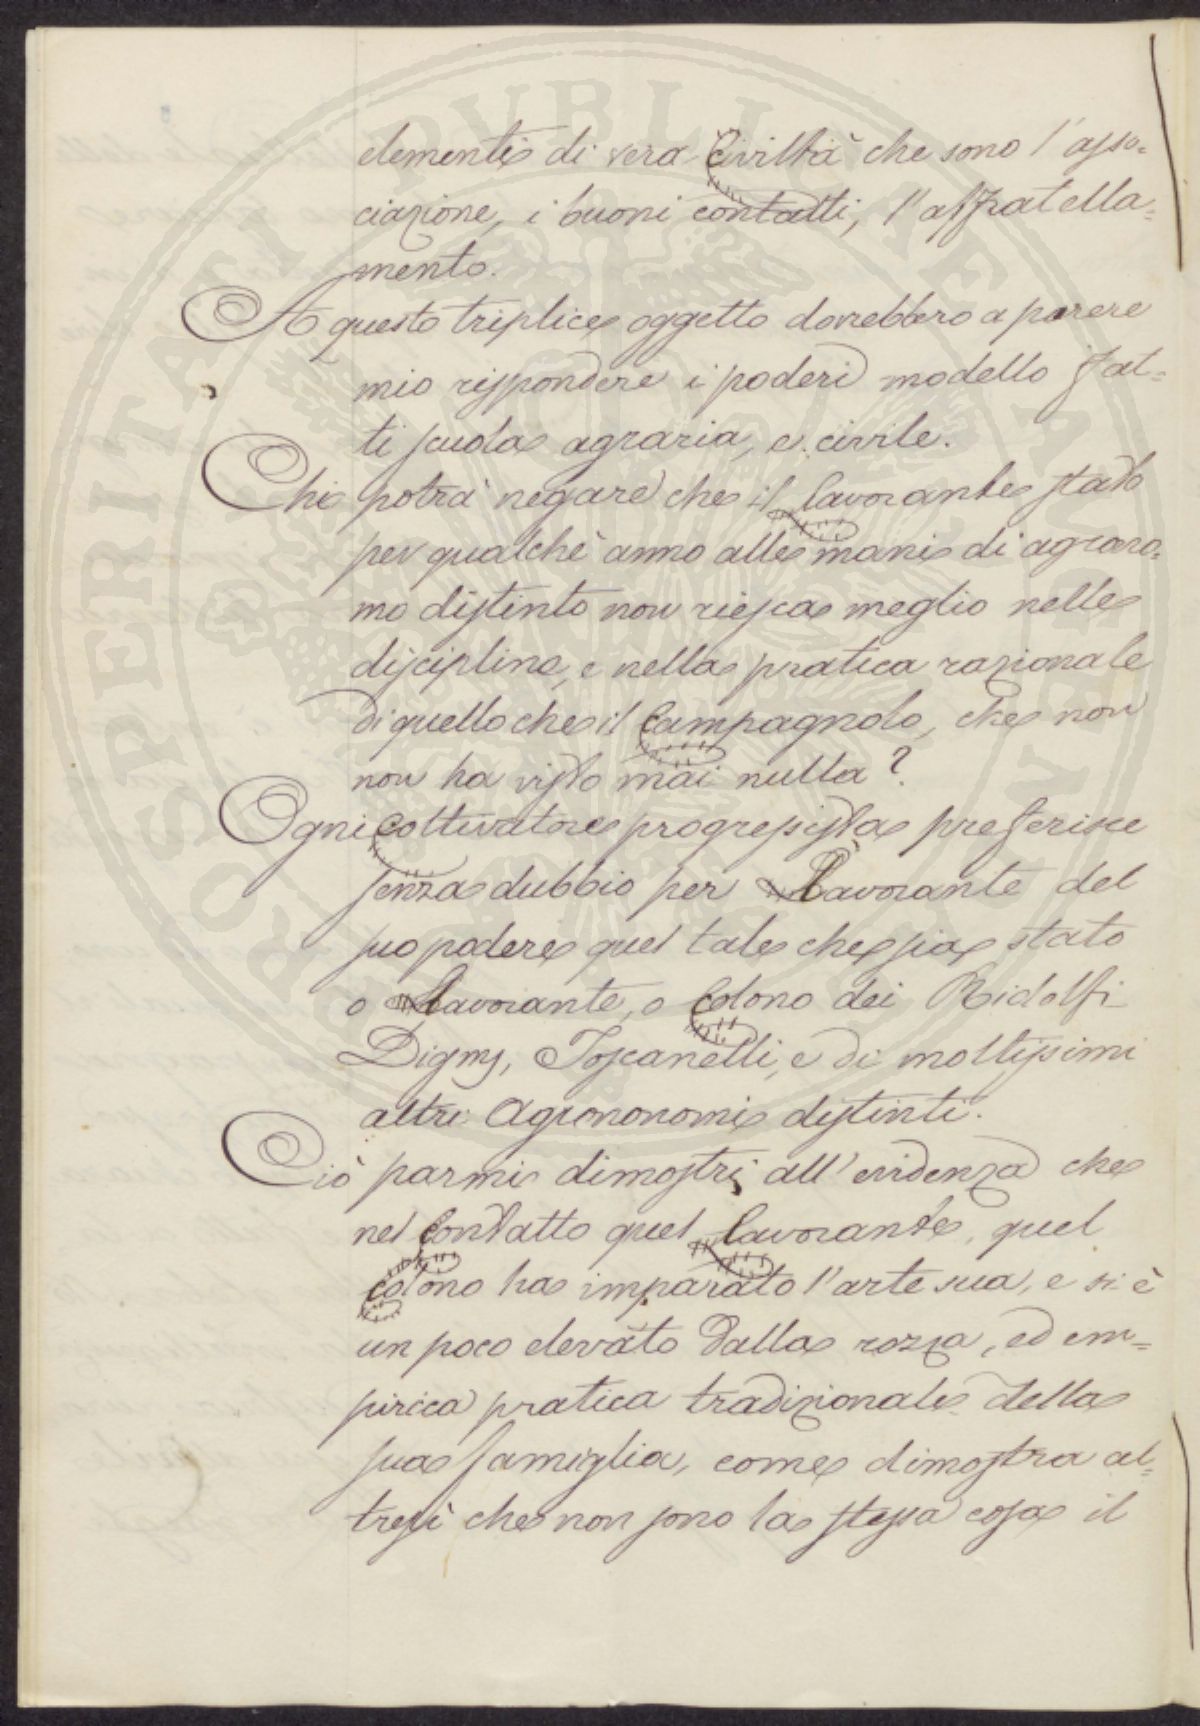 elementi di vera Civiltà che sono l'asso=
ciazione, i buoni contatti, l'affratella=
mento.
A questo triplice oggetto dovrebbero a parere
mio rispondere i poderi modello fat=
ti scuola agraria, e civile.
Chi potrà negare che il Lavorante stato
per qualche anno alle mani di agrono=
mo distinto non riesca meglio nelle
discipline, e nella pratica razionale
di quello che il Campagnolo, che non
non ha visto mai nulla?
Ogni coltivatore progressista preferisce
senza dubbio per Lavorante del
suo podere quel tale che sia stato
o Lavorante, o Colono dei Ridolfi
Digny, Toscanelli, e di moltissimi
altri Agrononomi distinti.
Ciò parmi dimostri all'evidenza che
nel Contatto quel Lavorante, quel
colono ha imparato l'arte sua, e si è
un poco elevato dalla rozza, ed em=
pirica pratica tradizionale della
sua famiglia, come dimostra al=
tresì che non sono la stessa cosa il
PROSPERITATI PVBLICAE AVGENDAE